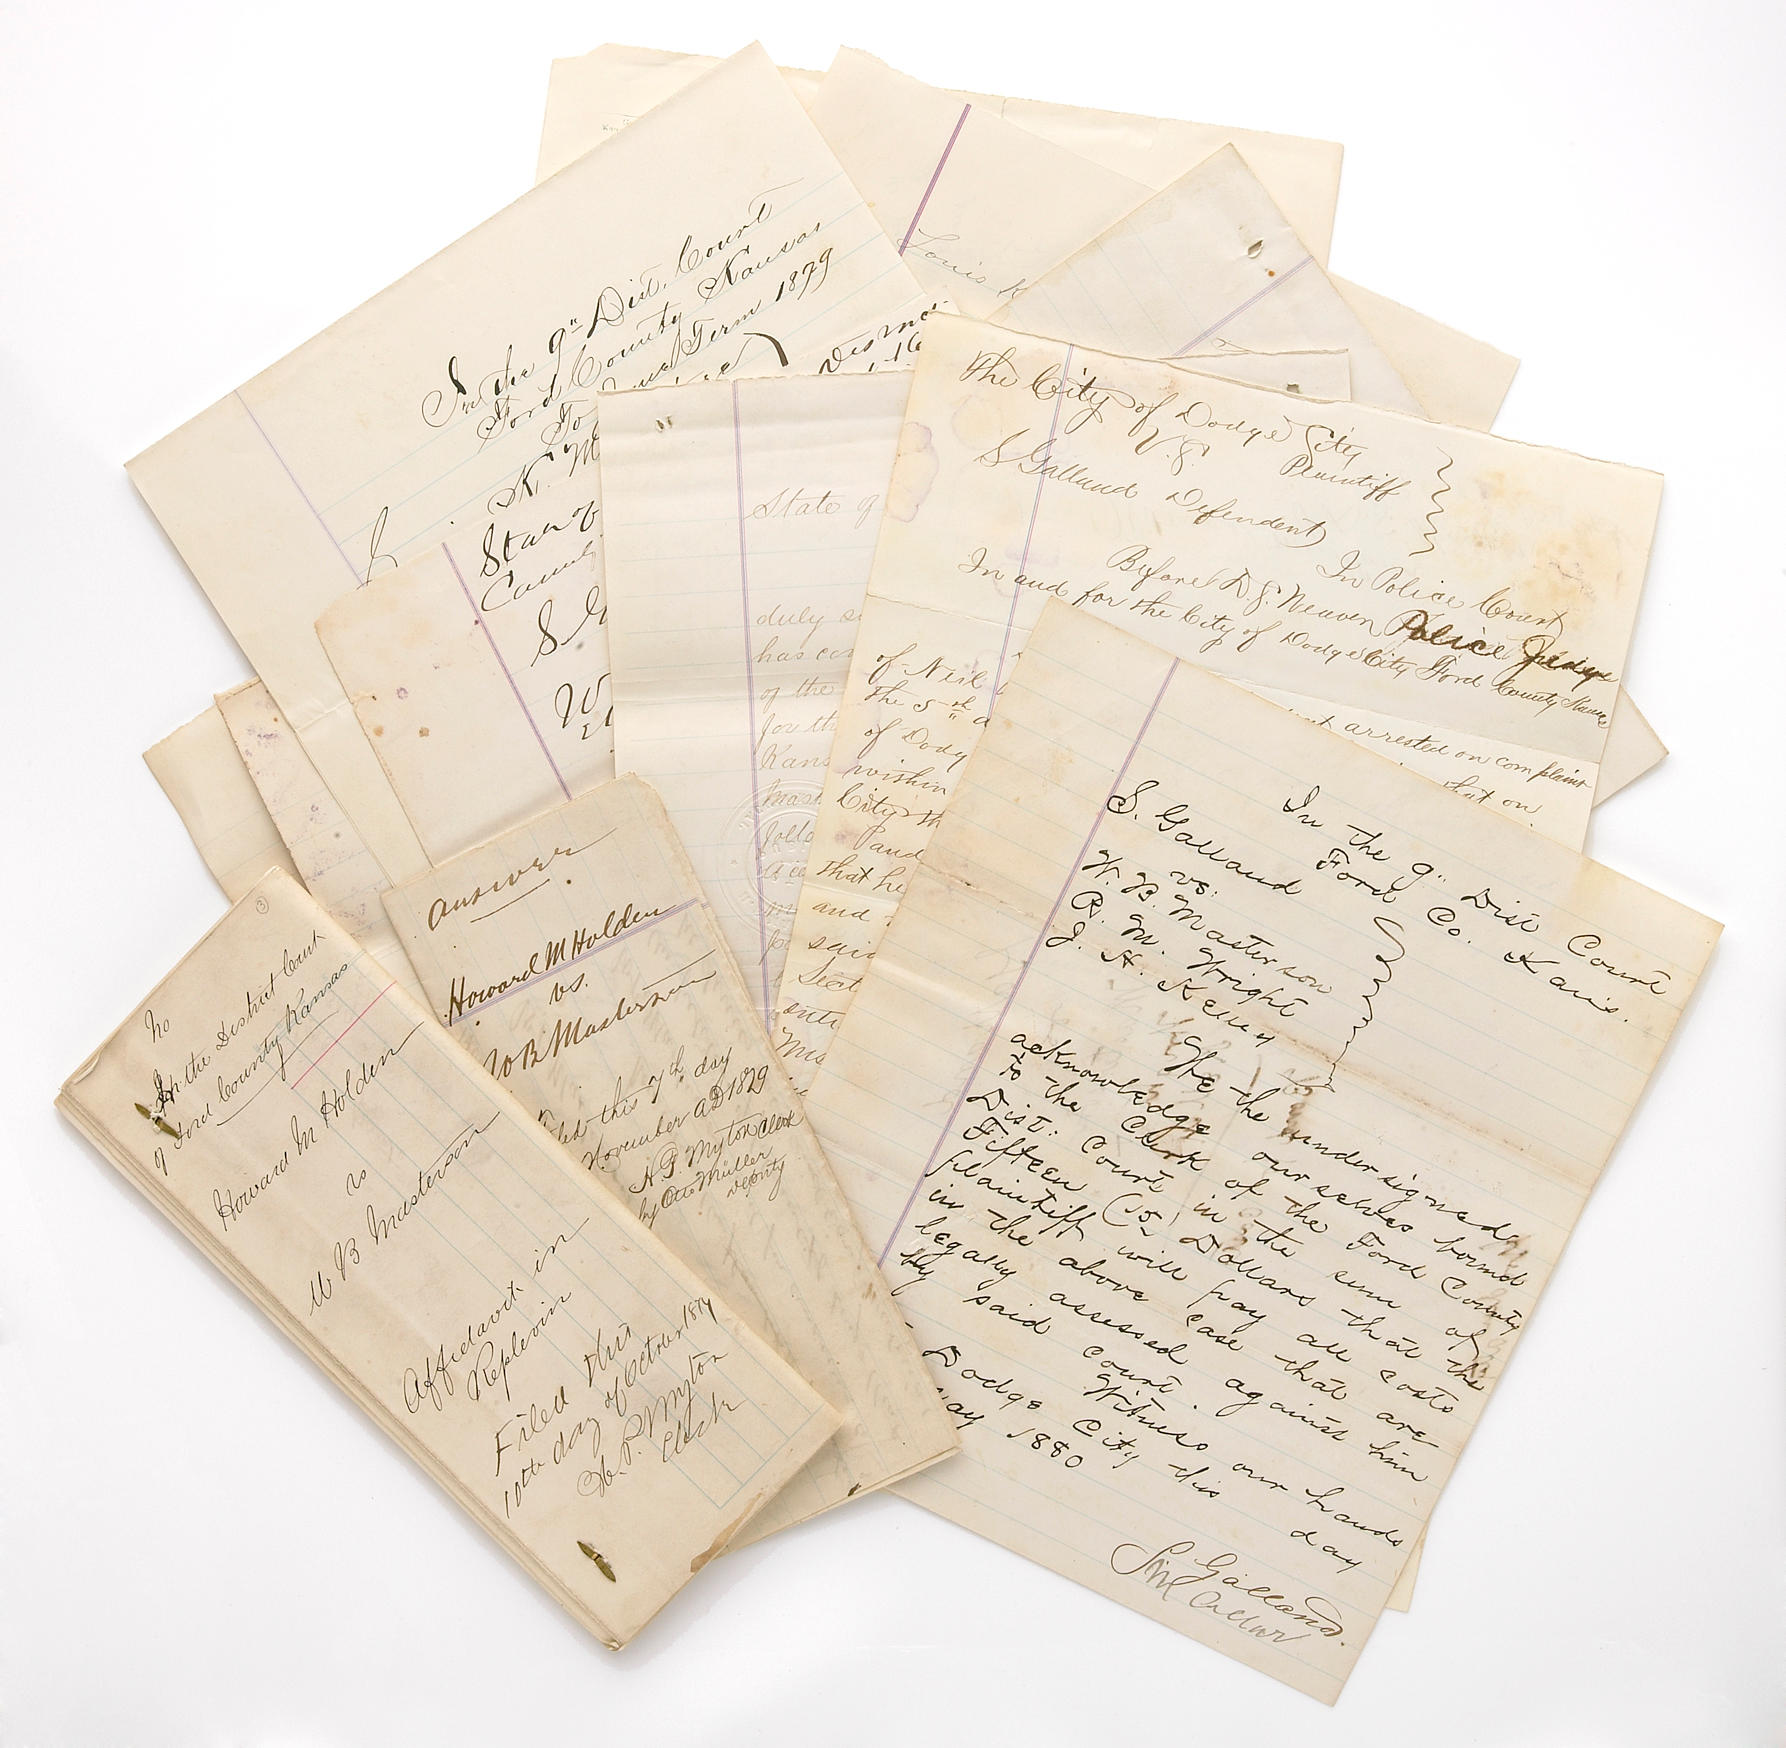 In the 9" Dist. Court
Ford County Kansas
Term 1879
To
K.
State of
County
S
W
Louis K
State of
duly
of the
for th
Kans
The City of Dodge City
Plaintiff
V.S.
S Galland Defendent
In Police Court
Before D.S. Weaver Police Judge
In and for the City of Dodge City Ford County
arrested on complaint
that on
of Neil
the 5th
of Dodg
wishin
City th
that he
and
said
In the 9" Dist Court
Ford Co. Kans.
S. Galland
vs.
W. B. Masterson
R. M. Wright
J. H. Kelley
We the undersigned
acknowledge ourselves bound
to the Clerk of the Ford County
Dist: Court in the sum of
Fifteen (15) Dollars that the
plaintiff will pay all costs
in the above case that are
legally assessed against him
by said court.
Witness our hands
Dodge City this day
May 1880
S Galland
Answer
Howard M Holden
vs.
W B Masterson
Filed this 7th day
November AD 1879
H. P. Myton Clerk
by Otto Müller
Deputy
3
No
In the District Court
of Ford County Kansas
Howard M Holden
vs
W B Masterson
Affidavit in
Replevin
Filed this
10th day of October 1879
H. P. Myton
Clerk